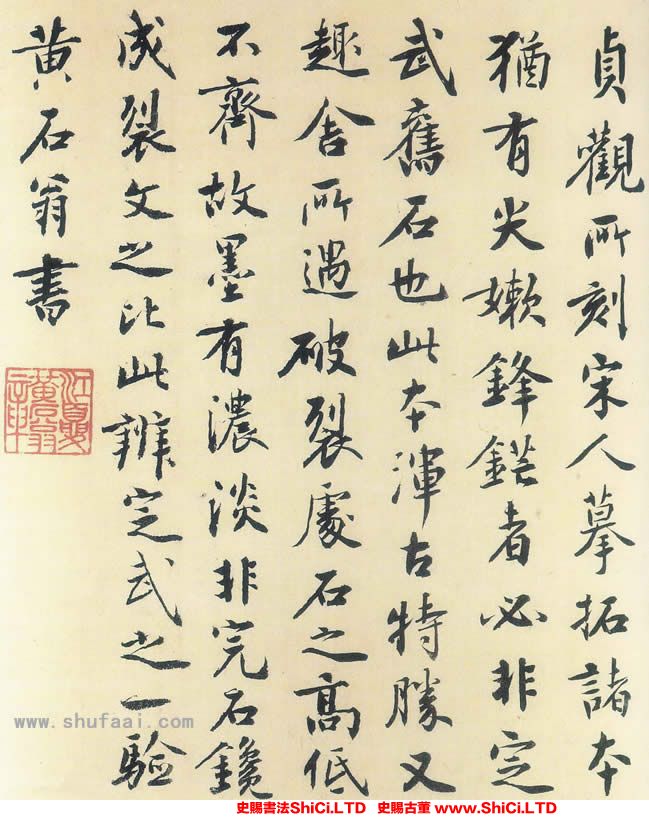 貞觀所刻宋人摹拓諸本
猶有尖嫩鋒鋩者必非定
武舊石也此本渾古特勝又
趣舍所遇破裂處石之高低
不齊故墨有濃淡非完石鑱
成裂文之比此辨定武之一驗
黄石翁書
www.shufaai.com
史賜書法ShiCi.LTD 史賜古董 www.ShiCi.LTD